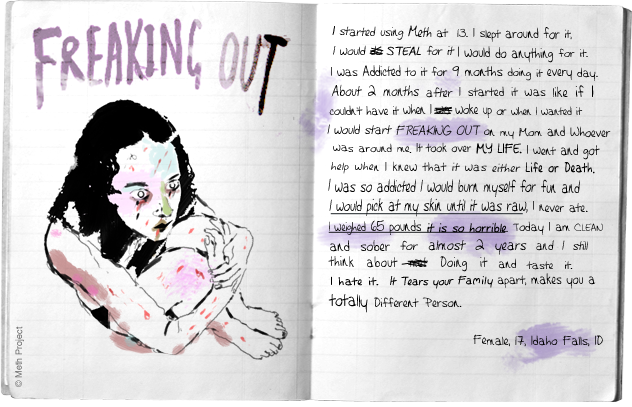 FREAKING OUT
© Meth Project
I started using Meth at 13. I slept around for it.
I would STEAL for it I would do anything for it.
I was Addicted to it for 9 months doing it every day.
About 2 months after I started it was like if I
couldn't have it when I woke up or when I wanted it
I would start FREAKING OUT on my Mom and Whoever
was around me. It took over MY LIFE. I went and got
help when I knew that it was either Life or Death.
I was so addicted I would burn myself for fun and
I would pick at my skin until it was raw, I never ate.
I weighed 65 pounds it is so horrible. Today I am CLEAN
and sober for almost 2 years and I still
think about Doing it and taste it.
I hate it. It Tears your Family apart, makes you a
totally Different Person.
Female, 17, Idaho Falls, ID